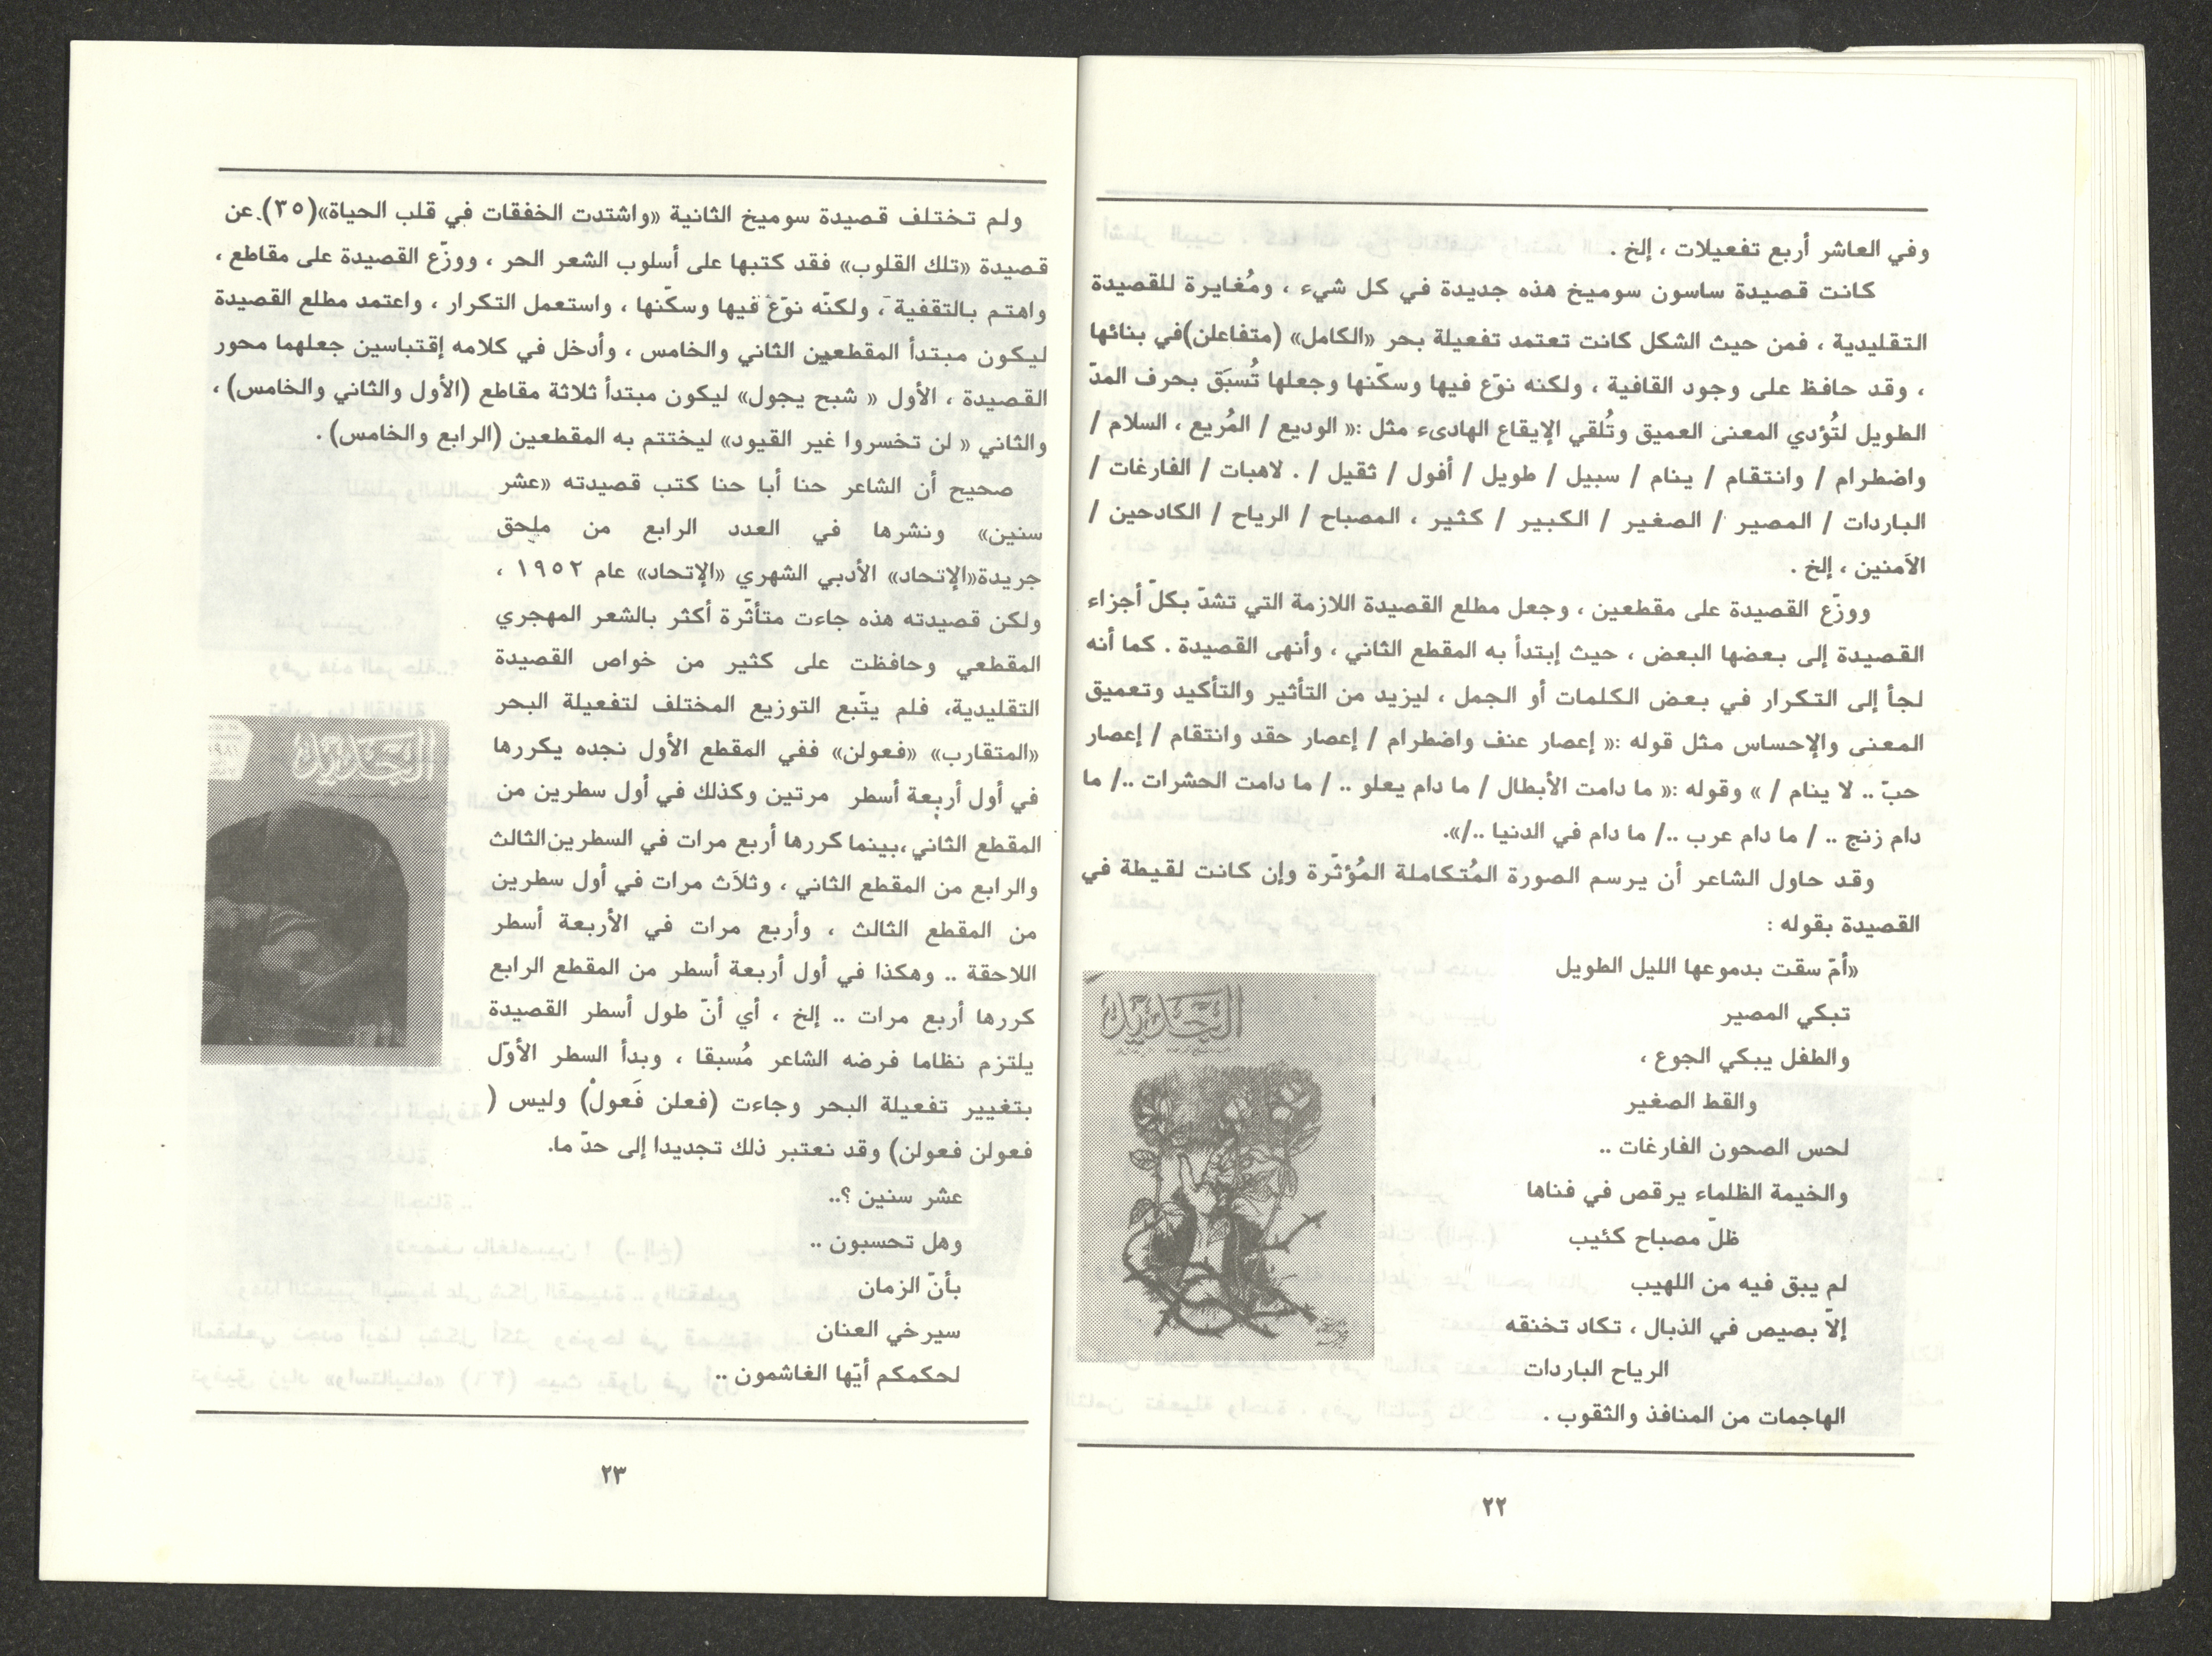 وفي العاشر أربع تفعيلات ، إلخ .
كانت قصيدة ساسون سوميخ هذه جديدة في كل شيء ، ومُغايرة للقصيدة
التقليدية ، فمن حيث الشكل كانت تعتمد تفعيلة بحر «الكامل» (متفاعلن)في بنائها
، وقد حافظ على وجود القافية ، ولكنه نوّع فيها وسكّنها وجعلها تُسبَق بحرف المدّ
الطويل لتُؤدي المعنى العميق وتُلقي الإيقاع الهادىء مثل :« الوديع / المُريع ، السلام /
واضطرام / وانتقام / ينام / سبيل / طويل / أفول / ثقيل / . لاهبات / الفارغات /
الباردات / المصير / الصغير / الكبير / كثير ، المصباح / الرياح / الكادحين /
الآمنين ، إلخ .
ووزّع القصيدة على مقطعين ، وجعل مطلع القصيدة اللازمة التي تشدّ بكلّ أجزاء
القصيدة إلى بعضها البعض ، حيث إبتدأ به المقطع الثاني ، وأنهى القصيدة . كما أنه
لجأ إلى التكرار في بعض الكلمات أو الجمل ، ليزيد من التأثير والتأكيد وتعميق
المعنى والإحساس مثل قوله :« إعصار عنف واضطرام / إعصار حقد وانتقام / إعصار
حبّ .. لا ينام / » وقوله :« ما دامت الأبطال / ما دام يعلو .. / ما دامت الحشرات ../ ما
دام زنج .. / ما دام عرب ../ ما دام في الدنيا ../».
وقد حاول الشاعر أن يرسم الصورة المُتكاملة المُؤثّرة وإن كانت لقيطة في
القصيدة بقوله :
«أمّ سقت بدموعها الليل الطويل
تبكي المصير
والطفل يبكي الجوع ،
والقط الصغير
لحس الصحون الفارغات ..
والخيمة الظلماء يرقص في فناها
ظلّ مصباح كئيب
لم يبق فيه من اللهيب
إلاّ بصيص في الذبال ، تكاد تخنقه
الرياح الباردات
الهاجمات من المنافذ والثقوب .
الجديد
٢٢
ولم تختلف قصيدة سوميخ الثانية «واشتدت الخفقات في قلب الحياة»(٣٥) عن
قصيدة «تلك القلوب» فقد كتبها على أسلوب الشعر الحر ، ووزّع القصيدة على مقاطع ،
واهتم بالتقفية ، ولكنّه نوّع فيها وسكّنها ، واستعمل التكرار ، واعتمد مطلع القصيدة
ليكون مبتدأ المقطعين الثاني والخامس ، وأدخل في كلامه إقتباسين جعلهما محور
القصيدة ، الأول « شبح يجول» ليكون مبتدأ ثلاثة مقاطع (الأول والثاني والخامس) ،
والثاني « لن تخسروا غير القيود» ليختتم به المقطعين (الرابع والخامس) .
صحيح أن الشاعر حنا أبا حنا كتب قصيدته «عشر
سنين» ونشرها في العدد الرابع من ملحق
جريدة«الإتحاد» الأدبي الشهري «الإتحاد» عام ١٩٥٢ ،
ولكن قصيدته هذه جاءت متأثّرة أكثر بالشعر المهجري
المقطعي وحافظت على كثير من خواص القصيدة
التقليدية، فلم يتّبع التوزيع المختلف لتفعيلة البحر
«المتقارب» «فعولن» ففي المقطع الأول نجده يكررها
في أول أربعة أسطر مرتين وكذلك في أول سطرين من
المقطع الثاني ،بينما كررها أربع مرات في السطرين الثالث
والرابع من المقطع الثاني ، وثلاث مرات في أول سطرين
من المقطع الثالث ، وأربع مرات في الأربعة أسطر
اللاحقة .. وهكذا في أول أربعة أسطر من المقطع الرابع
كررها أربع مرات .. إلخ ، أي أنّ طول أسطر القصيدة
يلتزم نظاما فرضه الشاعر مُسبقا ، وبدأ السطر الأوّل
بتغيير تفعيلة البحر وجاءت (فعلن فَعولْ) وليس (
فعولن فعولن) وقد نعتبر ذلك تجديدا إلى حدّ ما.
عشر سنين ؟..
وهل تحسبون ..
بأنّ الزمان
سيرخي العنان
لحكمكم أيّها الغاشمون ..
الجديد
٢٣